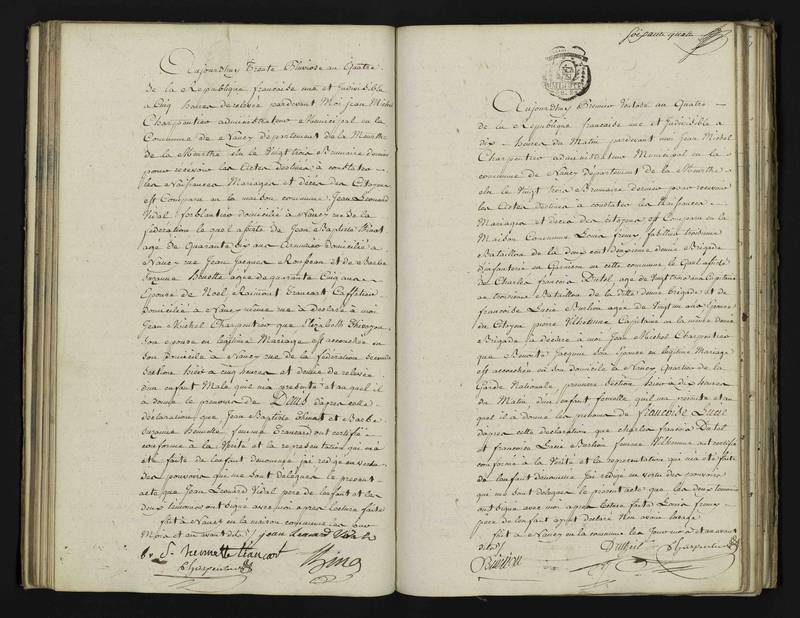 Aujourdhuy Trente Pluviose an Quatre
de la République françoise une et Indivisible
a Cinq heures de relevée pardevant Moi jean Michel
Charpentier administrateur Municipal en la
Commune de Nancy Département de la Meurthe
de la Meurthe Elu le Vingt trois Brumaire dernier
pour recevoir les Actes destinés à constater
les Naissances Mariages et décès des Citoyens
est Comparu en la maison commune Jean Leonard
Vidal domicilié à Nancy rue de la
fédération le quel assisté de Jean Baptiste
agé de Quarante Six ans domicilié à
Nancy rue Jean Jacques Rousseau et de Barbe
Suzanne agée de quarante Cinq ans
Epouse de Noel
domiciliée a Nancy même rue a déclaré à moi
Jean Michel Charpentier que Elizabeth
Son epouse en legitime Mariage est accouchée en
son domicile a Nancy rue de la fédération Seconde
Section hier a cinq heures et demie de relevée
d'un enfant Male qu'il m'a presenté et auquel il
a donné le prenom de Denis d'apres cette
déclaration que Jean Baptiste et Barbe
Suzanne femme ont certifié
conforme à la Vérité et la representation qui m'a
été faite de l'enfant denommé j'ai redigé en vertu
des pouvoirs qui me sont délégués le present
acte que Jean Leonard Vidal pere de l'enfant et les
deux temoins ont signé avec moi apres lecture faite
fait à Nancy en la maison commune les jour
Mois et an avant dits jean Leonard Vidal
Charpentier
Soixante quatre
Aujourdhuy Premier Ventose an Quatre
de la République française une et Indivisible a
dix heures du Matin pardevant moi Jean Michel
Charpentier administrateur Municipal en la
commune de Nancy Département de la Meurthe
elu le Vingt trois Brumaire dernier pour recevoir
les Actes destinés à constater les Naissances
Mariages et décès des citoyens est Comparu en la
Maison Commune Louis fusillier troisieme
Bataillon de la deux cent deuxieme demie Brigade
d'infanterie en Garnison en cette commune le Quel assisté
de Charles francois Duteil agé de Vingt trois ans Capitaine
au troisieme Bataillon de la dite demie brigade et de
francoise Lucie agée de Vingt un ans Epouse
du Citoyen pierre Capitaine a la même demie
Brigade a déclaré a moi Jean Michel Charpentier
que Benoite Jacquine Son Epouse en legitime Mariage
est accouchée en son domicile à Nancy Quartier de la
Garde Nationale premiere Section hier a dix heures
du Matin d'un enfant femelle qu'il m'a presenté et au
quel il a donné les prenoms de francoise Lucie
d'apres cette déclaration que charles francois Duteil
et francoise Lucie femme ont certifié
conforme à la Vérité et la representation qui m'a été faite
de l'enfant denommé j'ai redigé en vertu des pouvoirs
qui me sont delegués le present acte que les deux temoins
ont signé avec moi apres lecture faite Louis
pere de l'enfant ayant declaré
fait à Nancy en la maison commune les Jour mois et an avant
dits
Duteil Charpentier